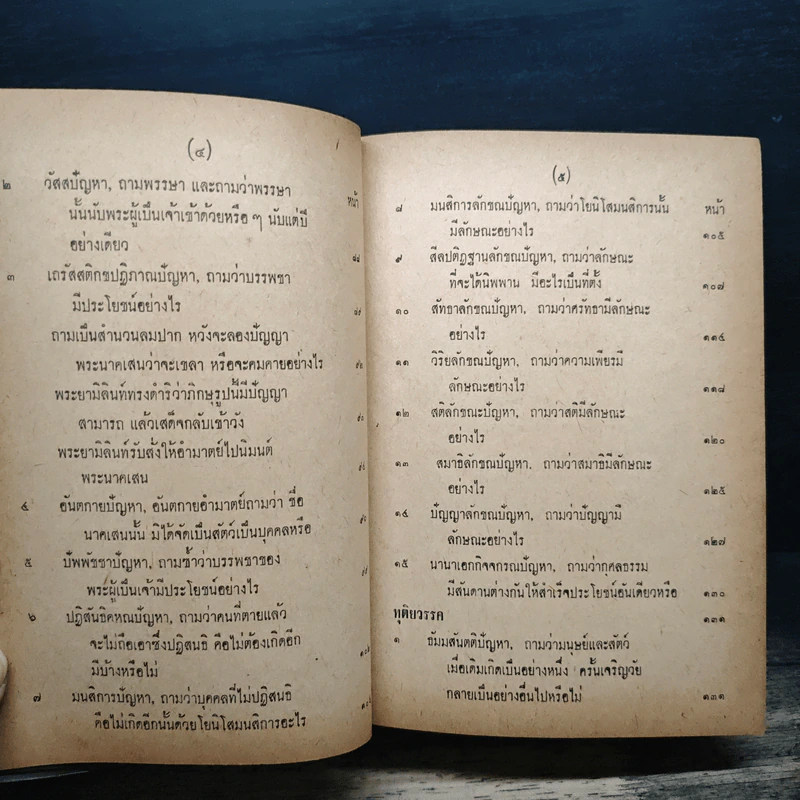 (๔)
หน้า
๒ วัสสปัญหา, ถามพรรษา และถามว่าพรรษา
นั้นนับพระผู้เป็นเจ้าเข้าด้วยหรือ ๆ นับแต่ปี
อย่างเดียว
๓ เถรัสสติกขปฏิภาณปัญหา, ถามว่าบรรพชา
มีประโยชน์อย่างไร
ถามเป็นสำนวนลมปาก หวังจะลองปัญญา
พระนาคเสนว่าจะเขลา หรือจะคมคายอย่างไร
พระยามิลินท์ทรงดำริว่าภิกษุรูปนี้มีปัญญา
สามารถ แล้วเสด็จกลับเข้าวัง
พระยามิลินท์รับสั่งให้อำมาตย์ไปนิมนต์
พระนาคเสน
๔ อันตกายปัญหา, อันตกายอำมาตย์ถามว่า ชื่อ
นาคเสนนั้น มิได้จัดเป็นสัตว์เป็นบุคคลหรือ
๕ ปัพพัชชาปัญหา, ถามซ้ำว่าบรรพชาของ
พระผู้เป็นเจ้ามีประโยชน์อย่างไร
๖ ปฏิสันธิคหณปัญหา, ถามว่าคนที่ตายแล้ว
จะไม่ถือเอาซึ่งปฏิสนธิ คือไม่ต้องเกิดอีก
มีบ้างหรือไม่
๗ มนสิการปัญหา, ถามว่าบุคคลที่ไม่ปฏิสนธิ
คือไม่เกิดอีกนั้นด้วยโยนิโสมนสิการอะไร
(๕)
หน้า
๘ มนสิการลักขณปัญหา, ถามว่าโยนิโสมนสิการนั้น
มีลักษณะอย่างไร ๑๐๕
๙ สีลปติฏฐานลักขณปัญหา, ถามว่าลักษณะ
ที่จะได้นิพพาน มีอะไรเป็นที่ตั้ง ๑๐๗
๑๐ สัทธาลักขณปัญหา, ถามว่าศรัทธามีลักษณะ
อย่างไร ๑๑๔
๑๑ วิริยลักขณปัญหา, ถามว่าความเพียรมี
ลักษณะอย่างไร ๑๑๘
๑๒ สติลักขณะปัญหา, ถามว่าสติมีลักษณะ
อย่างไร ๑๒๐
๑๓ สมาธิลักขณปัญหา, ถามว่าสมาธิมีลักษณะ
อย่างไร ๑๒๕
๑๔ ปัญญาลักขณปัญหา, ถามว่าปัญญามี
ลักษณะอย่างไร ๑๒๗
๑๕ นานาเอกกิจจกรณปัญหา, ถามว่ากุศลธรรม
มีสันดานต่างกันให้สำเร็จประโยชน์อันเดียวหรือ ๑๓๐
ทุติยวรรค ๑๓๑
๑ ธัมมสันตติปัญหา, ถามว่ามนุษย์และสัตว์
เมื่อเดิมเกิดเป็นอย่างหนึ่ง ครั้นเจริญวัย
กลายเป็นอย่างอื่นไปหรือไม่ ๑๓๑